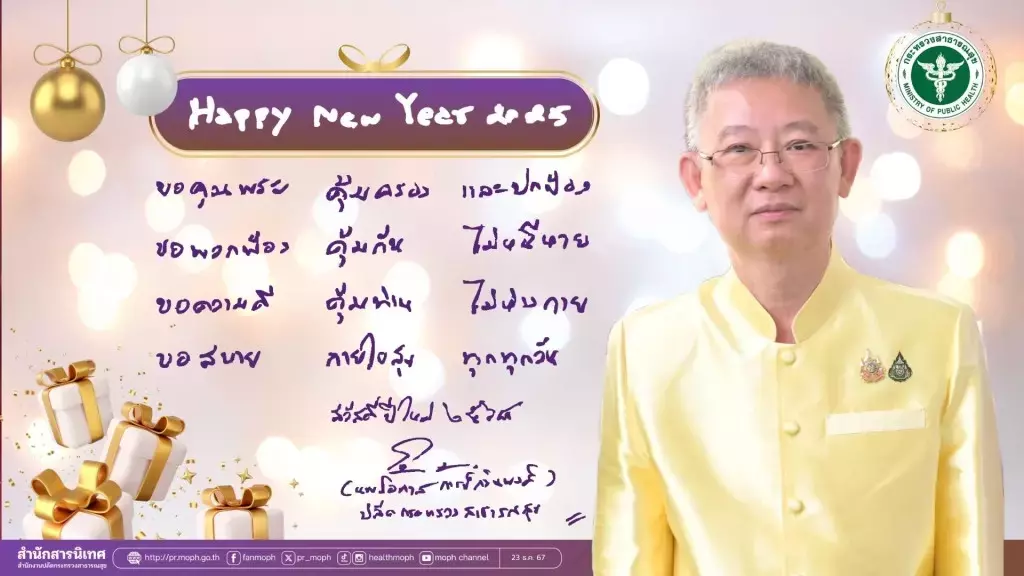 กระทรวงสาธารณสุข
MINISTRY OF PUBLIC HEALTH
Happy New Year 2025
ขอคุณพระ คุ้มครอง และปกป้อง
ขอพวกพ้อง คุ้มกัน ไม่หนีหาย
ขอความดี คุ้มท่าน ไม่ห่างกาย
ขอสบาย กายใจสุข ทุกทุกวัน
สวัสดีปีใหม่ ๒๕๖๘
(นพ.โอภาส การย์กวินพงศ์)
ปลัดกระทรวงสาธารณสุข
สำนักสารนิเทศ
สำนักงานปลัดกระทรวงสาธารณสุข
http://pr.moph.go.th fanmoph pr_moph healthmoph moph channel 23 ธ.ค. 67